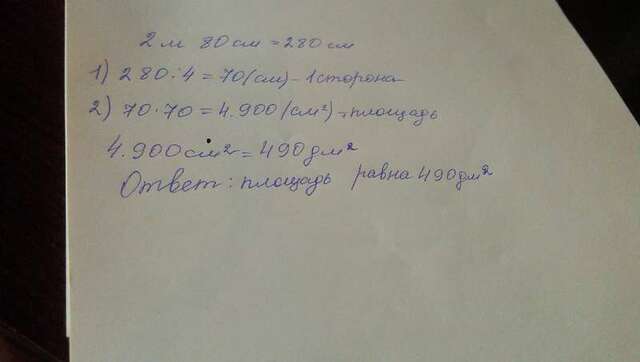 2 м 80 см = 280 см
1) 280:4 = 70 (см) - 1 сторона
2) 70·70 = 4.900 (см²) - площадь
4.900 см² = 490 дм²
Ответ: площадь равна 490 дм²